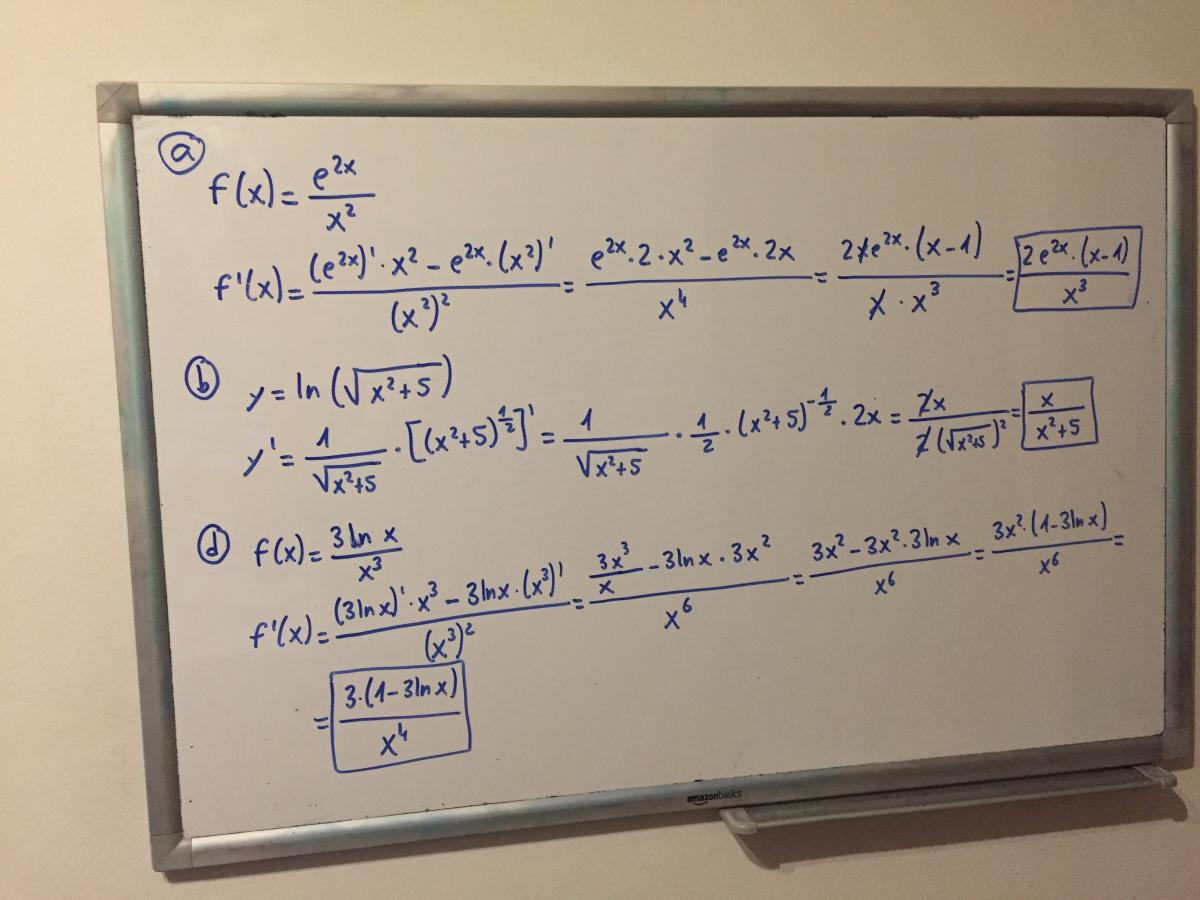 ⓐ
f(x) = e^{2x} / x²
f'(x) = ((e^{2x})' · x² - e^{2x} · (x²)') / (x²)² = (e^{2x} · 2 · x² - e^{2x} · 2x) / x⁴ = (2xe^{2x} · (x-1)) / (x · x³) = (2e^{2x} · (x-1)) / x³
ⓑ y = ln(√(x²+5))
y' = 1/√(x²+5) · [(x²+5)^{1/2}]' = 1/√(x²+5) · 1/2 · (x²+5)^{-1/2} · 2x = 2x / (2(√(x²+5))²) = x / (x²+5)
ⓓ f(x) = 3 ln x / x³
f'(x) = ((3lnx)' · x³ - 3lnx · (x³)') / (x³)² = (3x³/x - 3lnx · 3x²) / x⁶ = (3x² - 3x² · 3ln x) / x⁶ = (3x² · (1-3lnx)) / x⁶ =
= (3 · (1-3lnx)) / x⁴
amazonbasics